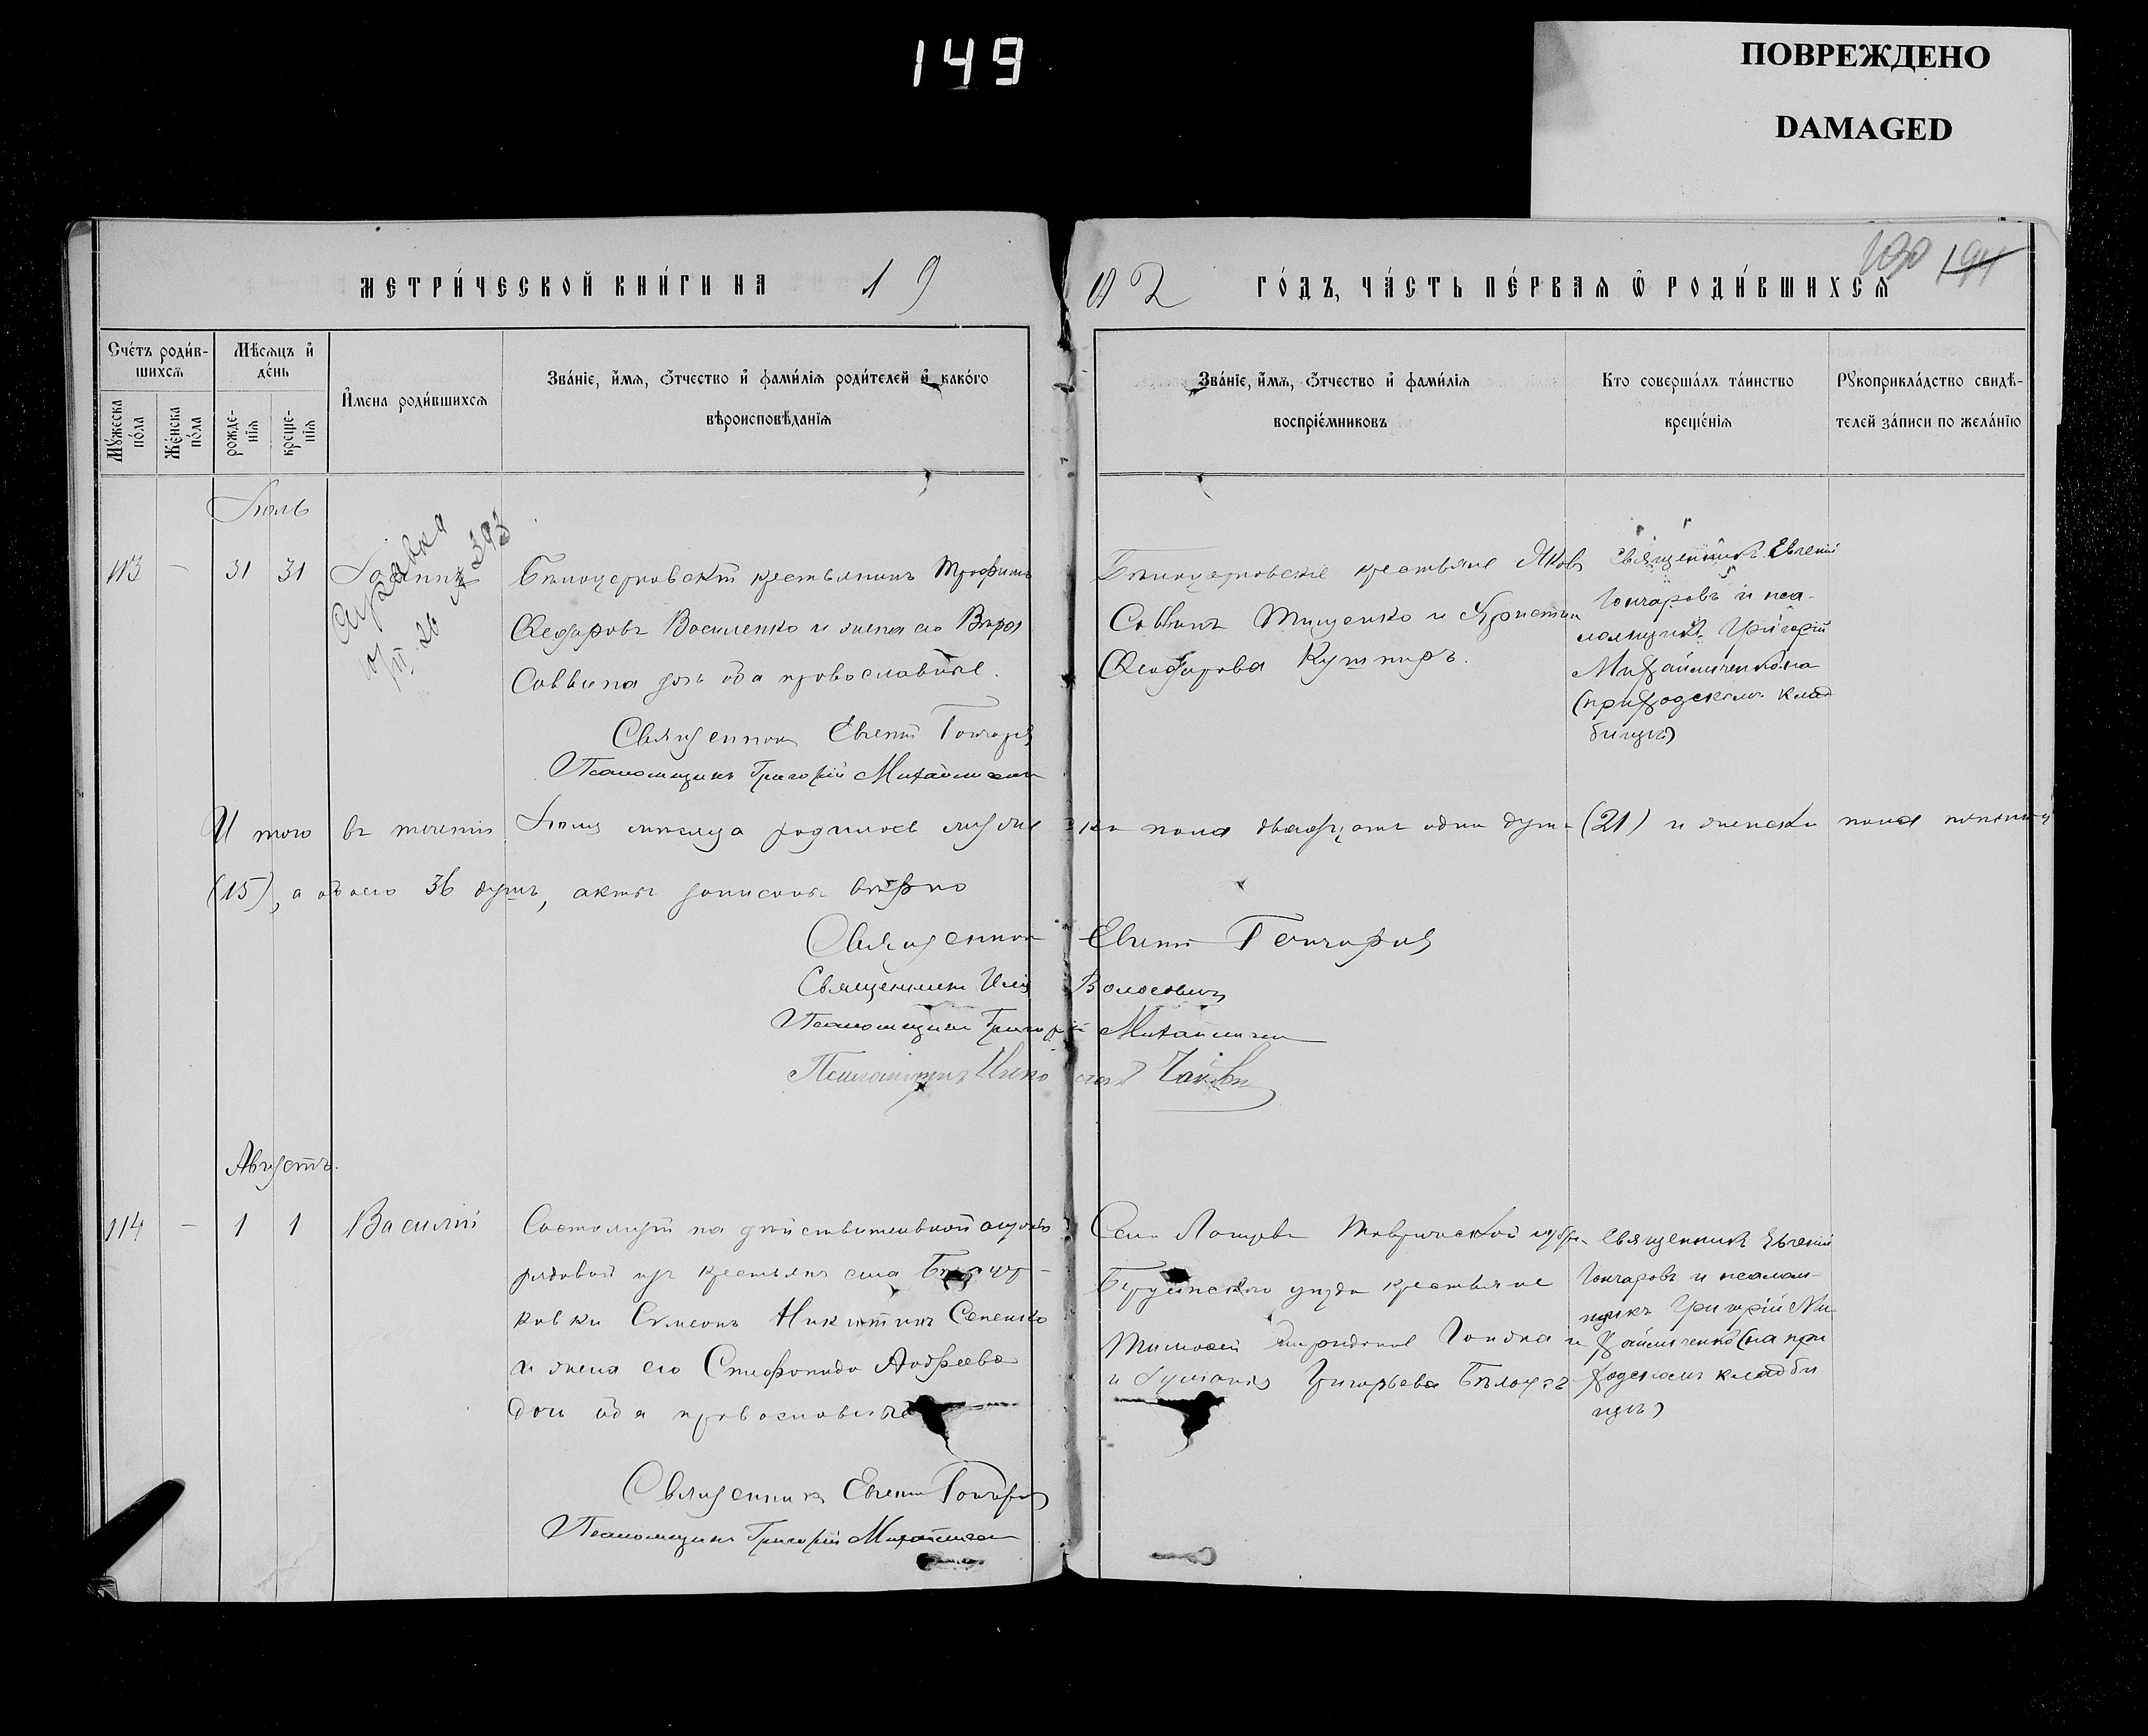 149
ПОВРЕЖДЕНО
DAMAGED
МЕТРИ́ЧЕСКОЙ КНИ́ГИ НА 19
02 ГО́ДЪ, ЧА́СТЬ ПЕ́РВАѦ Ѽ РОДИ́ВШИХСѦ
190 194
Сче́тъ роди́в-
шихсѧ
Мѣ́сѧцъ и҆
де́нь
Му́жеска
по́ла
Же́нска
по́ла
рожде-
нїѧ
креще-
нїѧ
И҆мена роди́вшихсѧ
Зва́нїе, и҆́мѧ, ѻ҆́тчество и҆ фами́лїѧ роди́телей и҆ како́го
вѣроисповѣ́данїѧ
Зва́нїе, и҆́мѧ, ѻ҆́тчество и҆ фами́лїѧ
воспрїе́мниковъ
Кто соверша́лъ та́инство
креще́нїѧ
Рꙋкоприкла́дство свидѣ́-
телей за́писи по жела́нїю
Іюль
Справка
№ 393
113 - 31 31 Іоаннъ
Бѣлоцерковскій крестьянинъ Трофимъ
Ѳедоровъ Василенко и жена его Вѣра
Саввина дочь оба православные.
Священникъ Евгеній Гончаровъ
Псаломщикъ Григорій Михайличенко
Бѣлоцерковскіе крестьяне Яковъ
Саввинъ Тищенко и Христина
Ѳеодорова Кушниръ.
Священникъ Евгеній
Гончаровъ и пса-
ломщикъ Григорій
Михайличенко на
(приходскомъ клад
бищѣ)
И того въ теченіи Іюля мѣсяца родилось мужес
ка пола двадцать одна душа (21) и женска пола пятнадц
(15), а обоего 36 душъ, акты записаны вѣрно
Священникъ Евгеній Гончаровъ
Священникъ Илія Волосевичъ
Псаломщикъ Григорій Михайличенко
Псаломщикъ
Августъ.
114 - 1 1 Василій
Состоящій на дѣйствительной службѣ
рядовой изъ крестьянъ села
ковки Сѵмеонъ Никитинъ
и жена его Стефанида Андреева
дочь оба православные
Священникъ Евгеній Гончаровъ
Псаломщикъ Григорій Михайличенко
Села Таврической губер.
уѣзда крестьяне
Тимофей и
и Григорьева
Священникъ Евгеній
Гончаровъ и псалом-
щикъ Григорій Ми-
хайличенко (на при
ходскомъ кладби
щѣ)